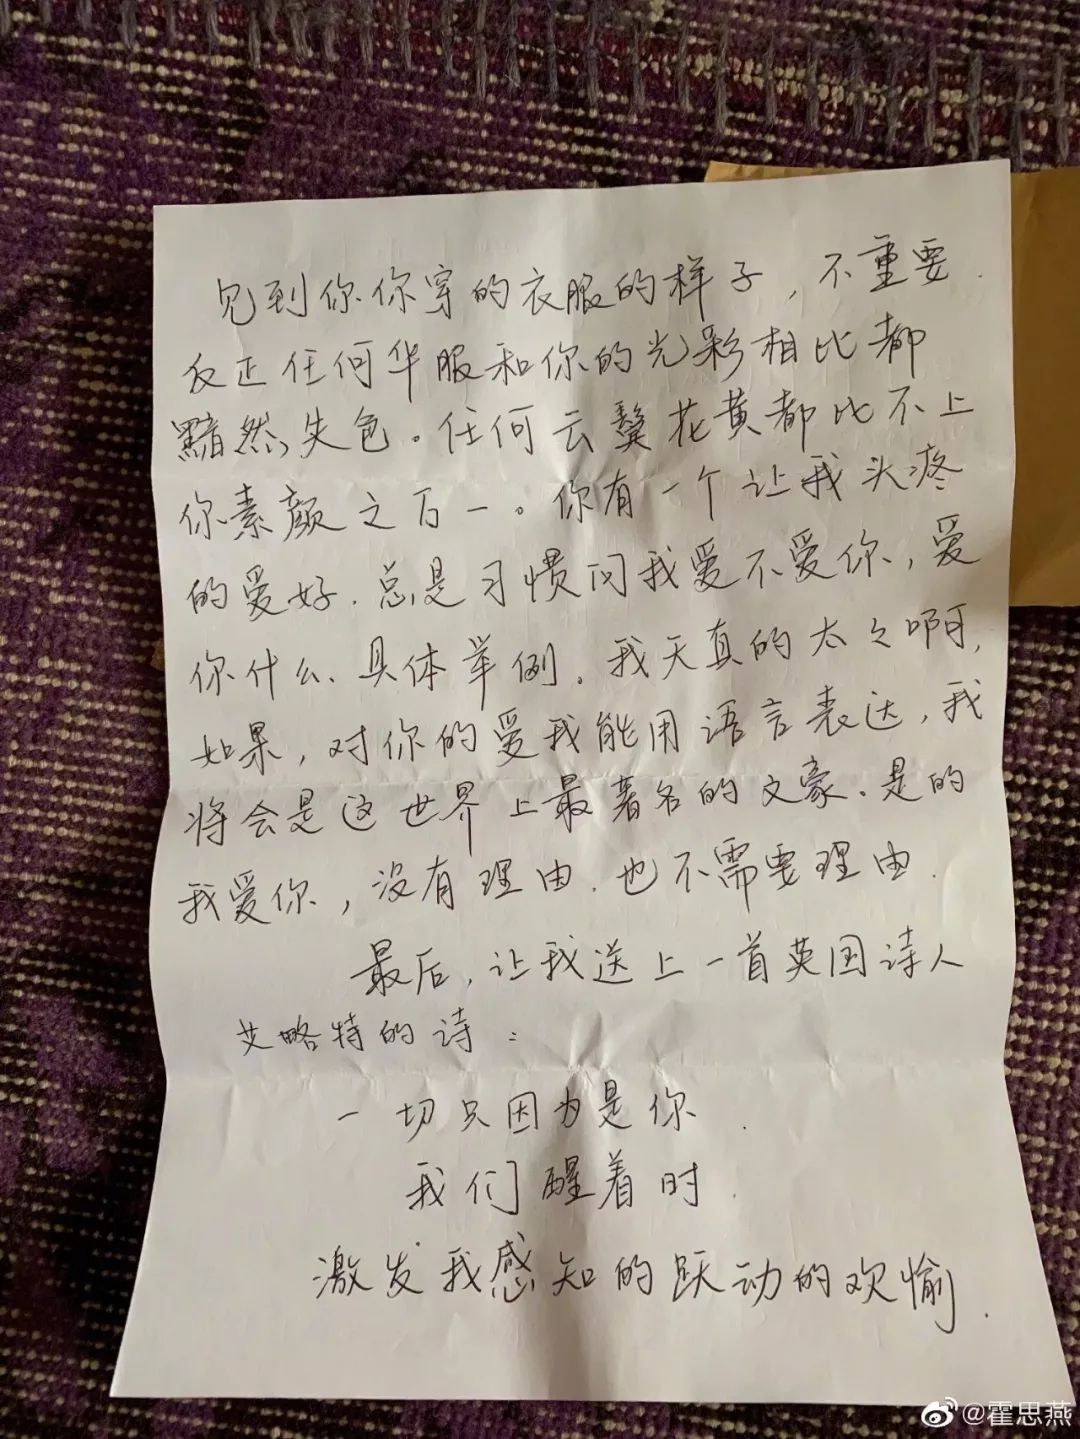 见到你你穿的衣服的样子，不重要.
反正任何华服和你的光彩相比都
黯然失色。任何云鬓花黄都比不上
你素颜之万一。你有一个让我头疼
的爱好.总是习惯问我爱不爱你，爱
你什么、具体举例。我天真的太太啊，
如果，对你的爱我能用语言表达，我
将会是这世界上最著名的文豪.是的
我爱你，没有理由.也不需要理由.
最后，让我送上一首英国诗人
艾略特的诗：
一切只因为是你.
我们醒着时.
激发我感知的跃动的欢愉.
@霍思燕